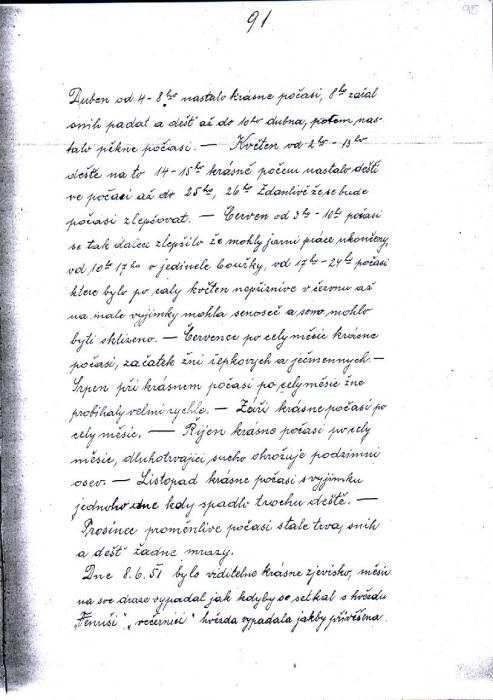 91
95
Duben od 4-8ho nastalo krásne počasi, 8ho začal
snih padat a dešť až do 10ho dubna, potem nas-
talo pěkne počasi. — Květen od 2ho - 13ho
deště na to 14-15ho krásné počem nastalo deští
ve počasi až do 25ho, 26ho Zdanlivě že se bude
počasi zlepšovat. — Červen od 3ho - 10ho počasi
se tak dalec zlepšilo že mohly jarni práce ukončeny,
od 10ho 17ho v jedinele bouřky, od 17ho - 24ho počasi
ktere bylo po caly květen nepřiznive v červnu až
na male vyjimky mohla senoseč a seno mohlo
byti sklizeno. — Července po cely měsic krásne
počasi, začatek žni řepkovych a ječmennych. —
Srpen při krásnem počasi po cely měsic žne
probihaly velmi rychle. — Záři krásne počasi po
cely měsic. — Řijen krásne počasi po cely
měsic, dluhotrvajici sucho ohrožuje podzimni
osev. — Listopad krásne počasi s vyjimku
jednoho dne kdy spadlo trochu deště. —
Prosinec proměnlive počasi stale trva, snih
a dešť žadne mrazy.
Dne 8.6.51 bylo viditelne krásne zjevisko, měsic
na sve draze vypadal jak kdyby se setkal s hvězdu
„Venuši" „večernici" hvězda vypadala jakby přivěšena.